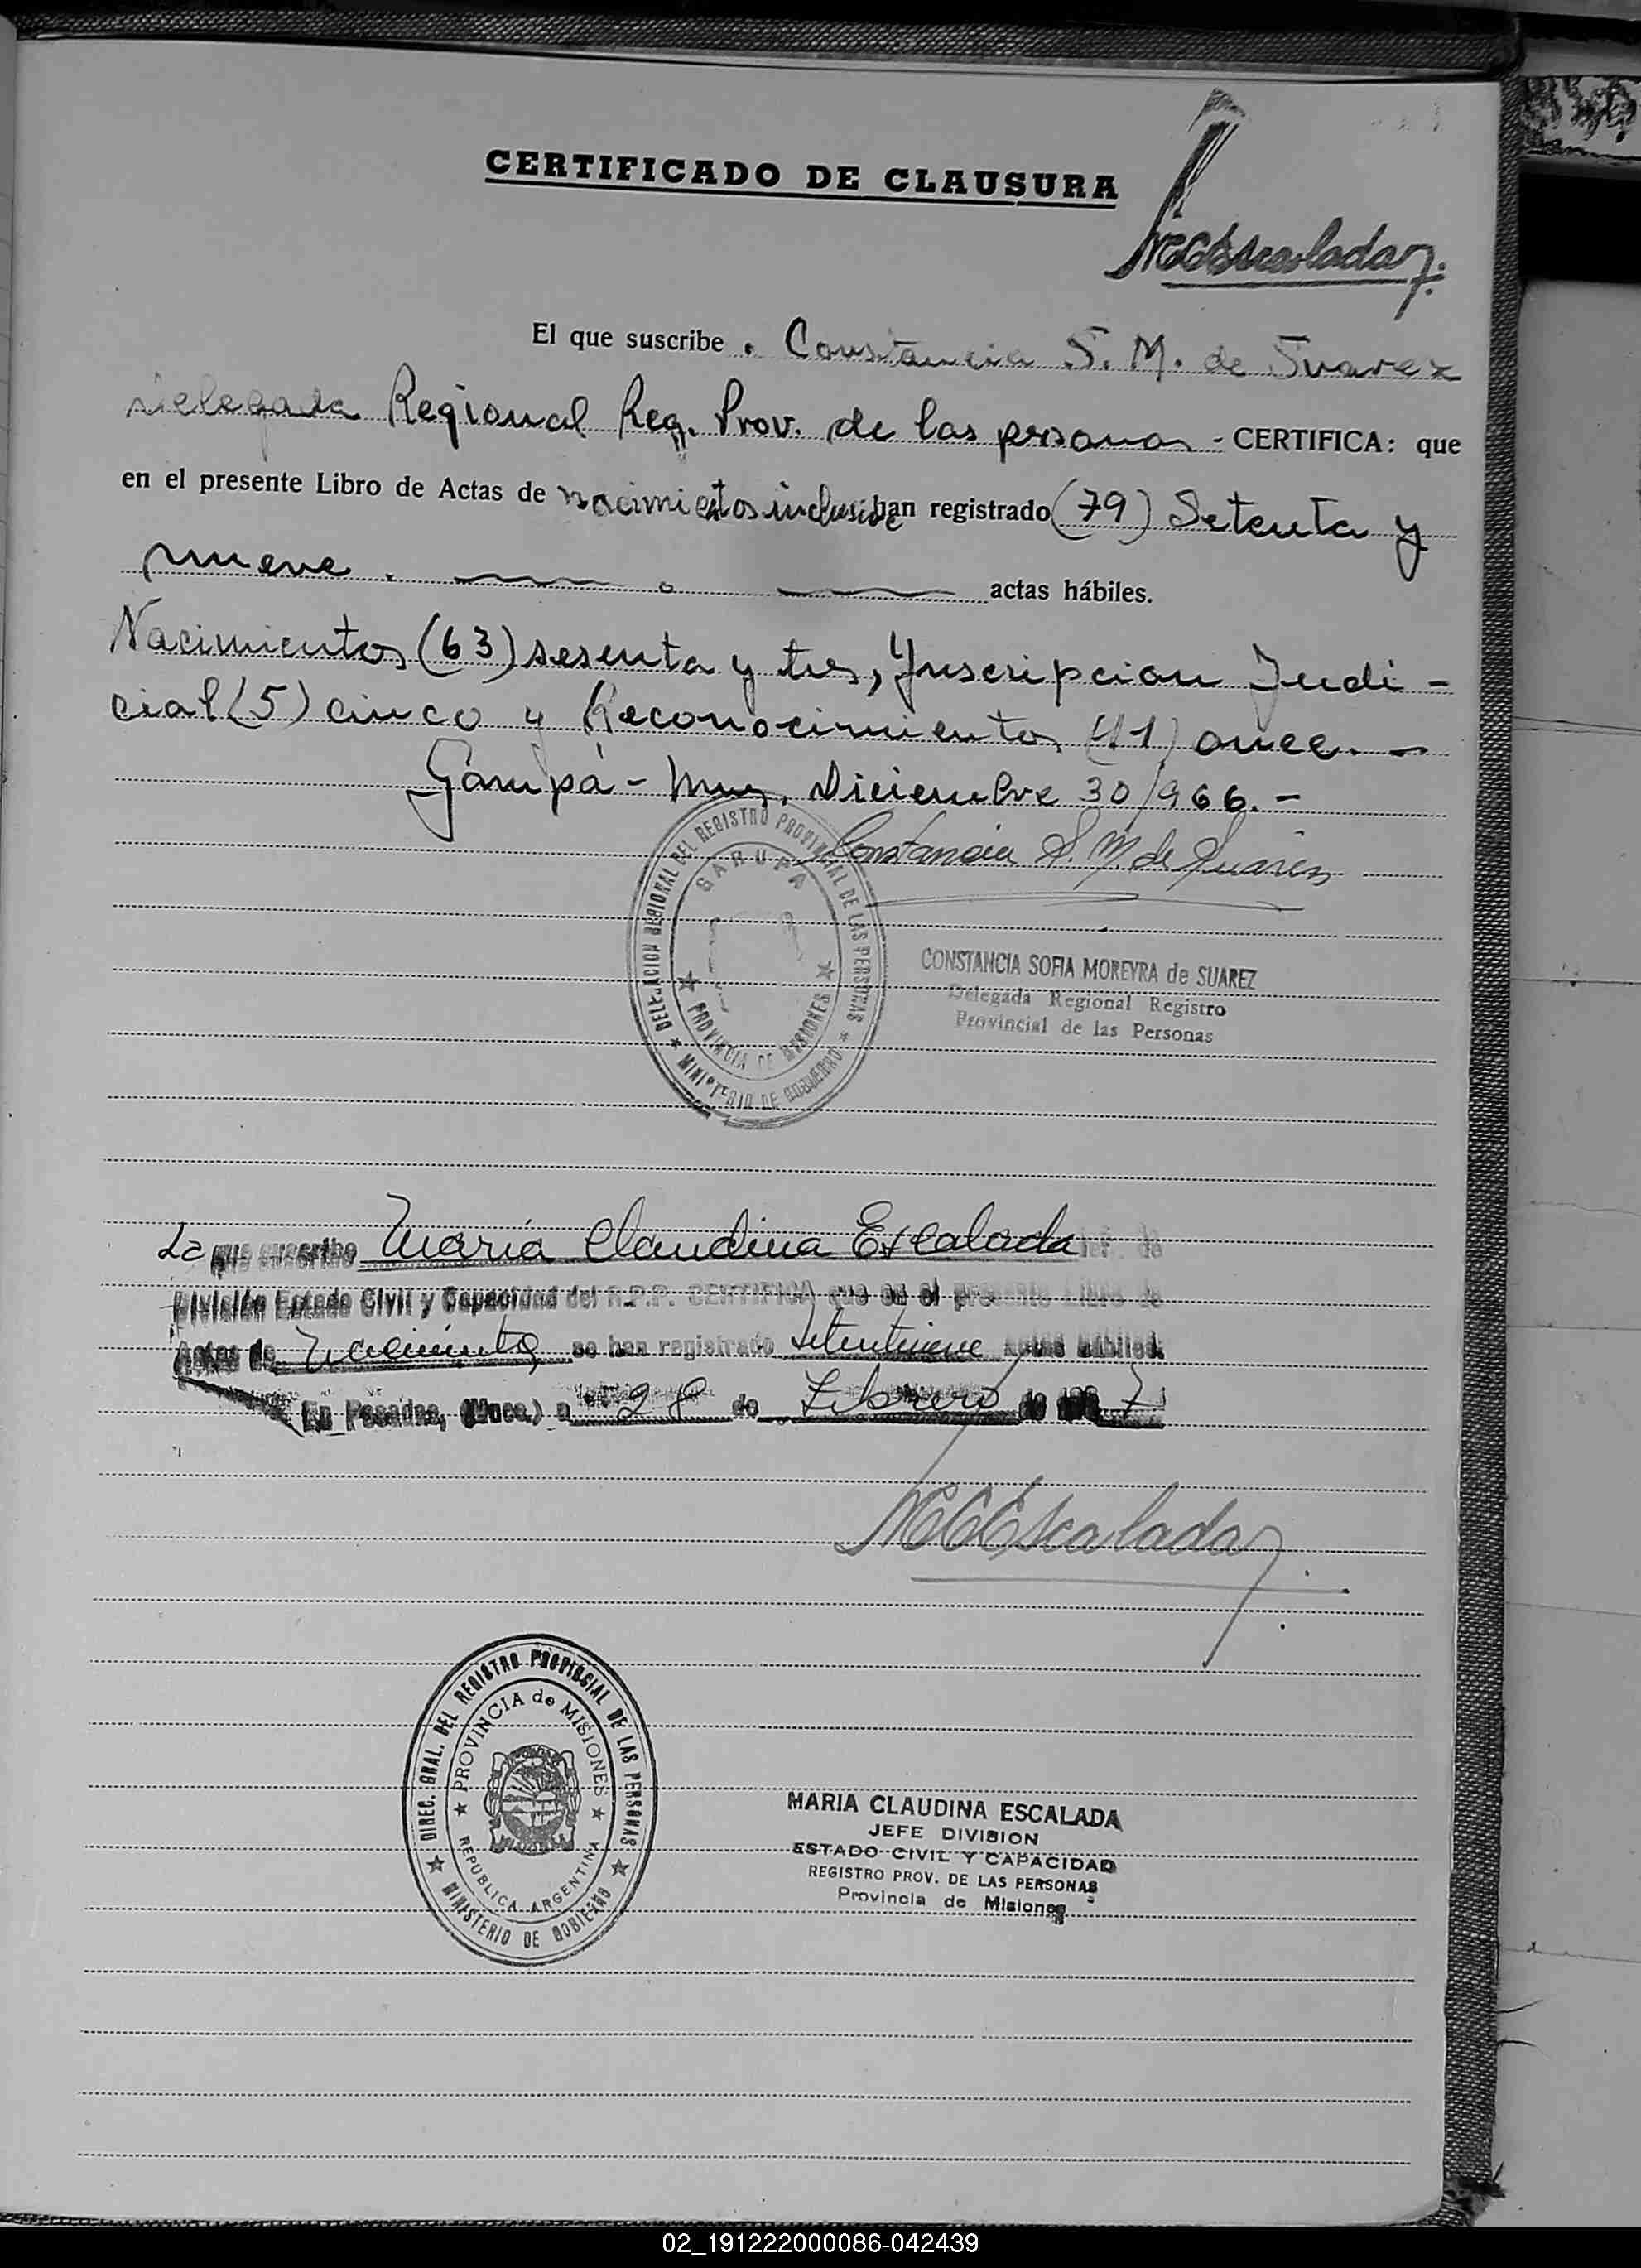 CERTIFICADO DE CLAUSURA
MCEscalada
El que suscribe. Constancia S. M. de Suarez
Delegada Regional Reg. Prov. de las personas - CERTIFICA: que
en el presente Libro de Actas de nacimientos inclusive han registrado (79) Setenta y
nueve. actas hábiles.
Nacimientos (63) sesenta y tres, Inscripcion Judi-
cial (5) cinco y Reconocimientos (11) once. -
Garupá - Mnes. Diciembre 30/966. -
Constancia S. M. de Suarez
DELEGACION REGIONAL DEL REGISTRO PROVINCIAL DE LAS PERSONAS
GARUPA
PROVINCIA DE MISIONES
MINISTERIO DE GOBIERNO
CONSTANCIA SOFIA MOREYRA de SUAREZ
Delegada Regional Registro
Provincial de las Personas
La que suscribe María Claudina Escalada Jef. de
División Estado Civil y Capacidad del R.P.P. CERTIFICA que en el presente Libro de
Actas de Nacimiento se han registrado setentinueve actas hábiles.
En Posadas, (Mnes.) a 28 de Febrero de 1967
MCEscalada
DIREC. GRAL. DEL REGISTRO PROVINCIAL DE LAS PERSONAS
PROVINCIA de MISIONES
REPUBLICA ARGENTINA
MINISTERIO DE GOBIERNO
MARIA CLAUDINA ESCALADA
JEFE DIVISION
ESTADO CIVIL Y CAPACIDAD
REGISTRO PROV. DE LAS PERSONAS
Provincia de Misiones
02_191222000086-042439